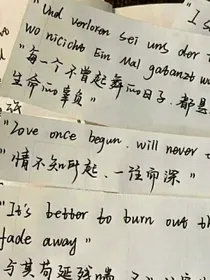 "I s
"Und verloren sei uns der t
wo nicicht Ein Mal gatanzt w
"每一个不曾起舞的日子,都是
生命的辜负"
"Love once begun, will never
"情不知所起,一往而深"
"It's better to burn out th
fade away"
与其苟延残喘